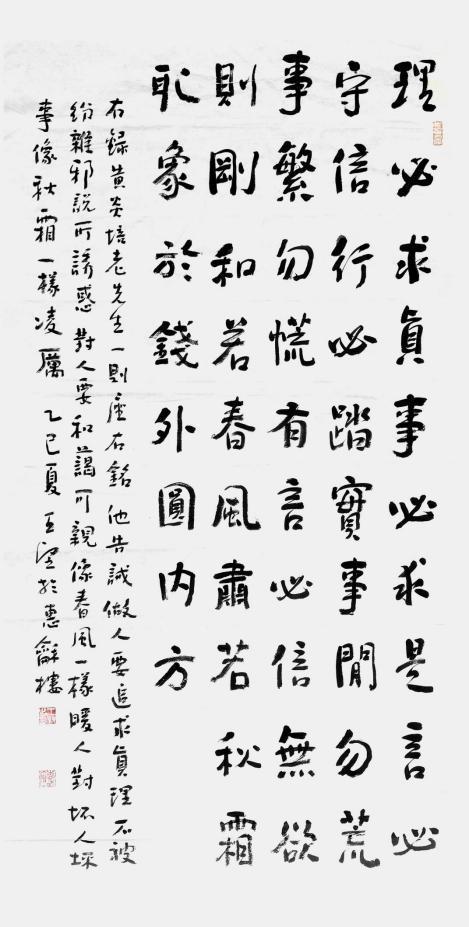 理必求眞事必求是言必
守信行必踏實事閒勿荒
事繁勿慌有言必信無欲
則剛和若春風肅若秋霜
取象於錢外圓内方
右錄黄炎培老先生一則座右銘他告誡做人要追求眞理不被
紛雜邪說所誘惑對人要和藹可親像春風一樣暖人對坏人坏
事像秋霜一樣凌厲 乙巳夏 王於惠龢樓